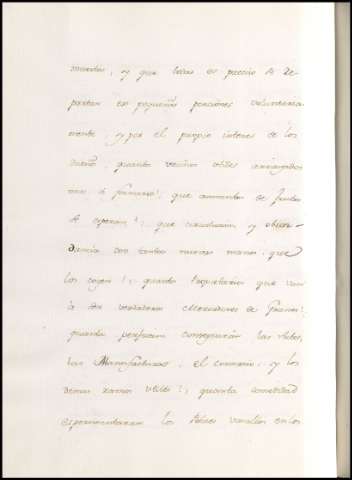 muertos; y que estas es preciso se re-
partan en pequeñas porciones voluntaria
mente, y por el propio interes de los
Dueños, quanto vecinos utiles arraigados
mas, ò primeros!; que aumentos de frutos
se esperan!; que caudales, y abun-
dancia con tantas nuevas manos, que
los cojen!; quantos Propietarios que van
à ser verdaderos Mercaderes de Granos!
quanta perfeccion conseguiràn las Artes,
las Manufacturas, el comercio, y los
demas ramos utiles!; quanta comodidad
experimentaran los Pobres vasallos en los